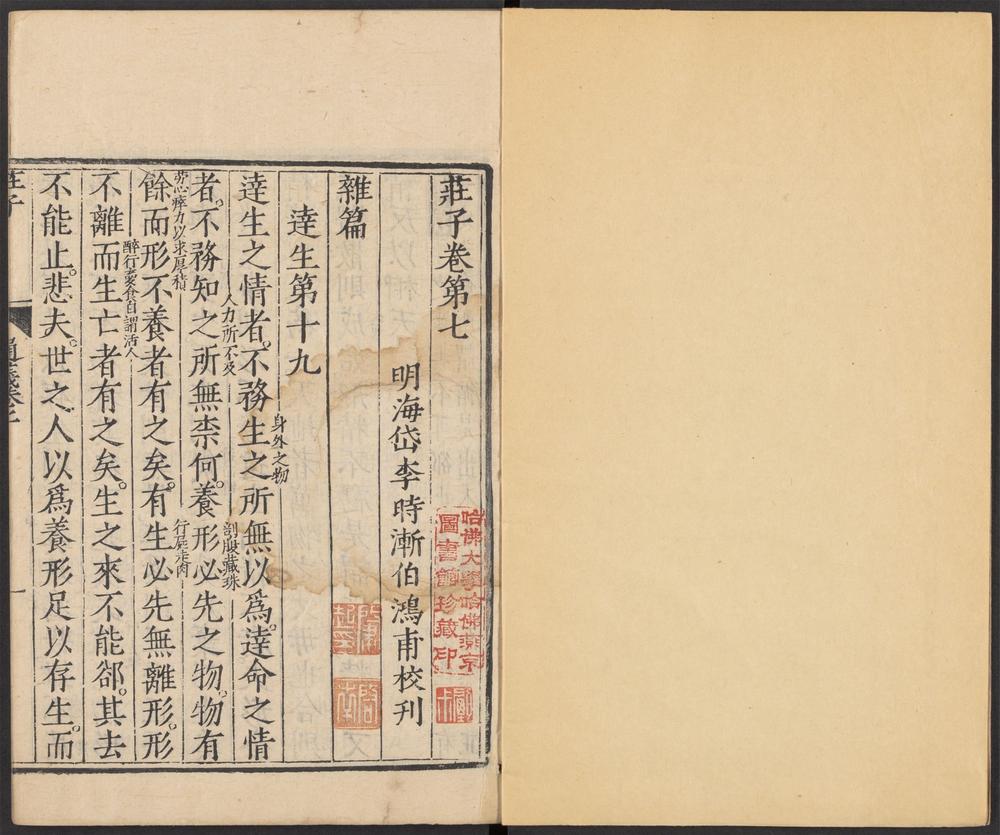 莊子卷第七
明海岱李時漸伯鴻甫校刊
雜篇
達生第十九
達生之情者。不務生之所無以爲。達命之情
身外之物
者。不務知之所無柰何。養形必先之物。物有
人力所不及
剖腹藏珠
餘而形不養者有之矣。有生必先無離形。形
勞心瘁力以求厚積
行尸走肉
不離而生亡者有之矣。生之來不能郤。其去
醉行囊食自謂活人
不能止。悲夫。世之人以爲養形足以存生。而
莊子
哈佛大學哈佛燕京
圖書館珍藏印